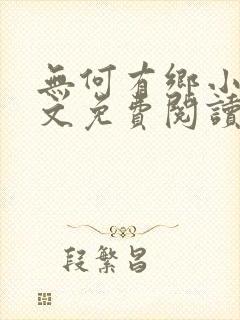 無何有鄉小
文免費閱讀
段繁昌